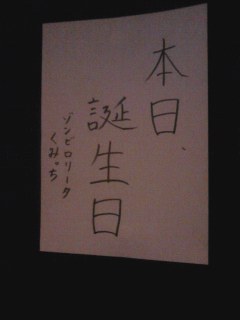 本日、
誕生日
ゾンビロリータ
くみっち